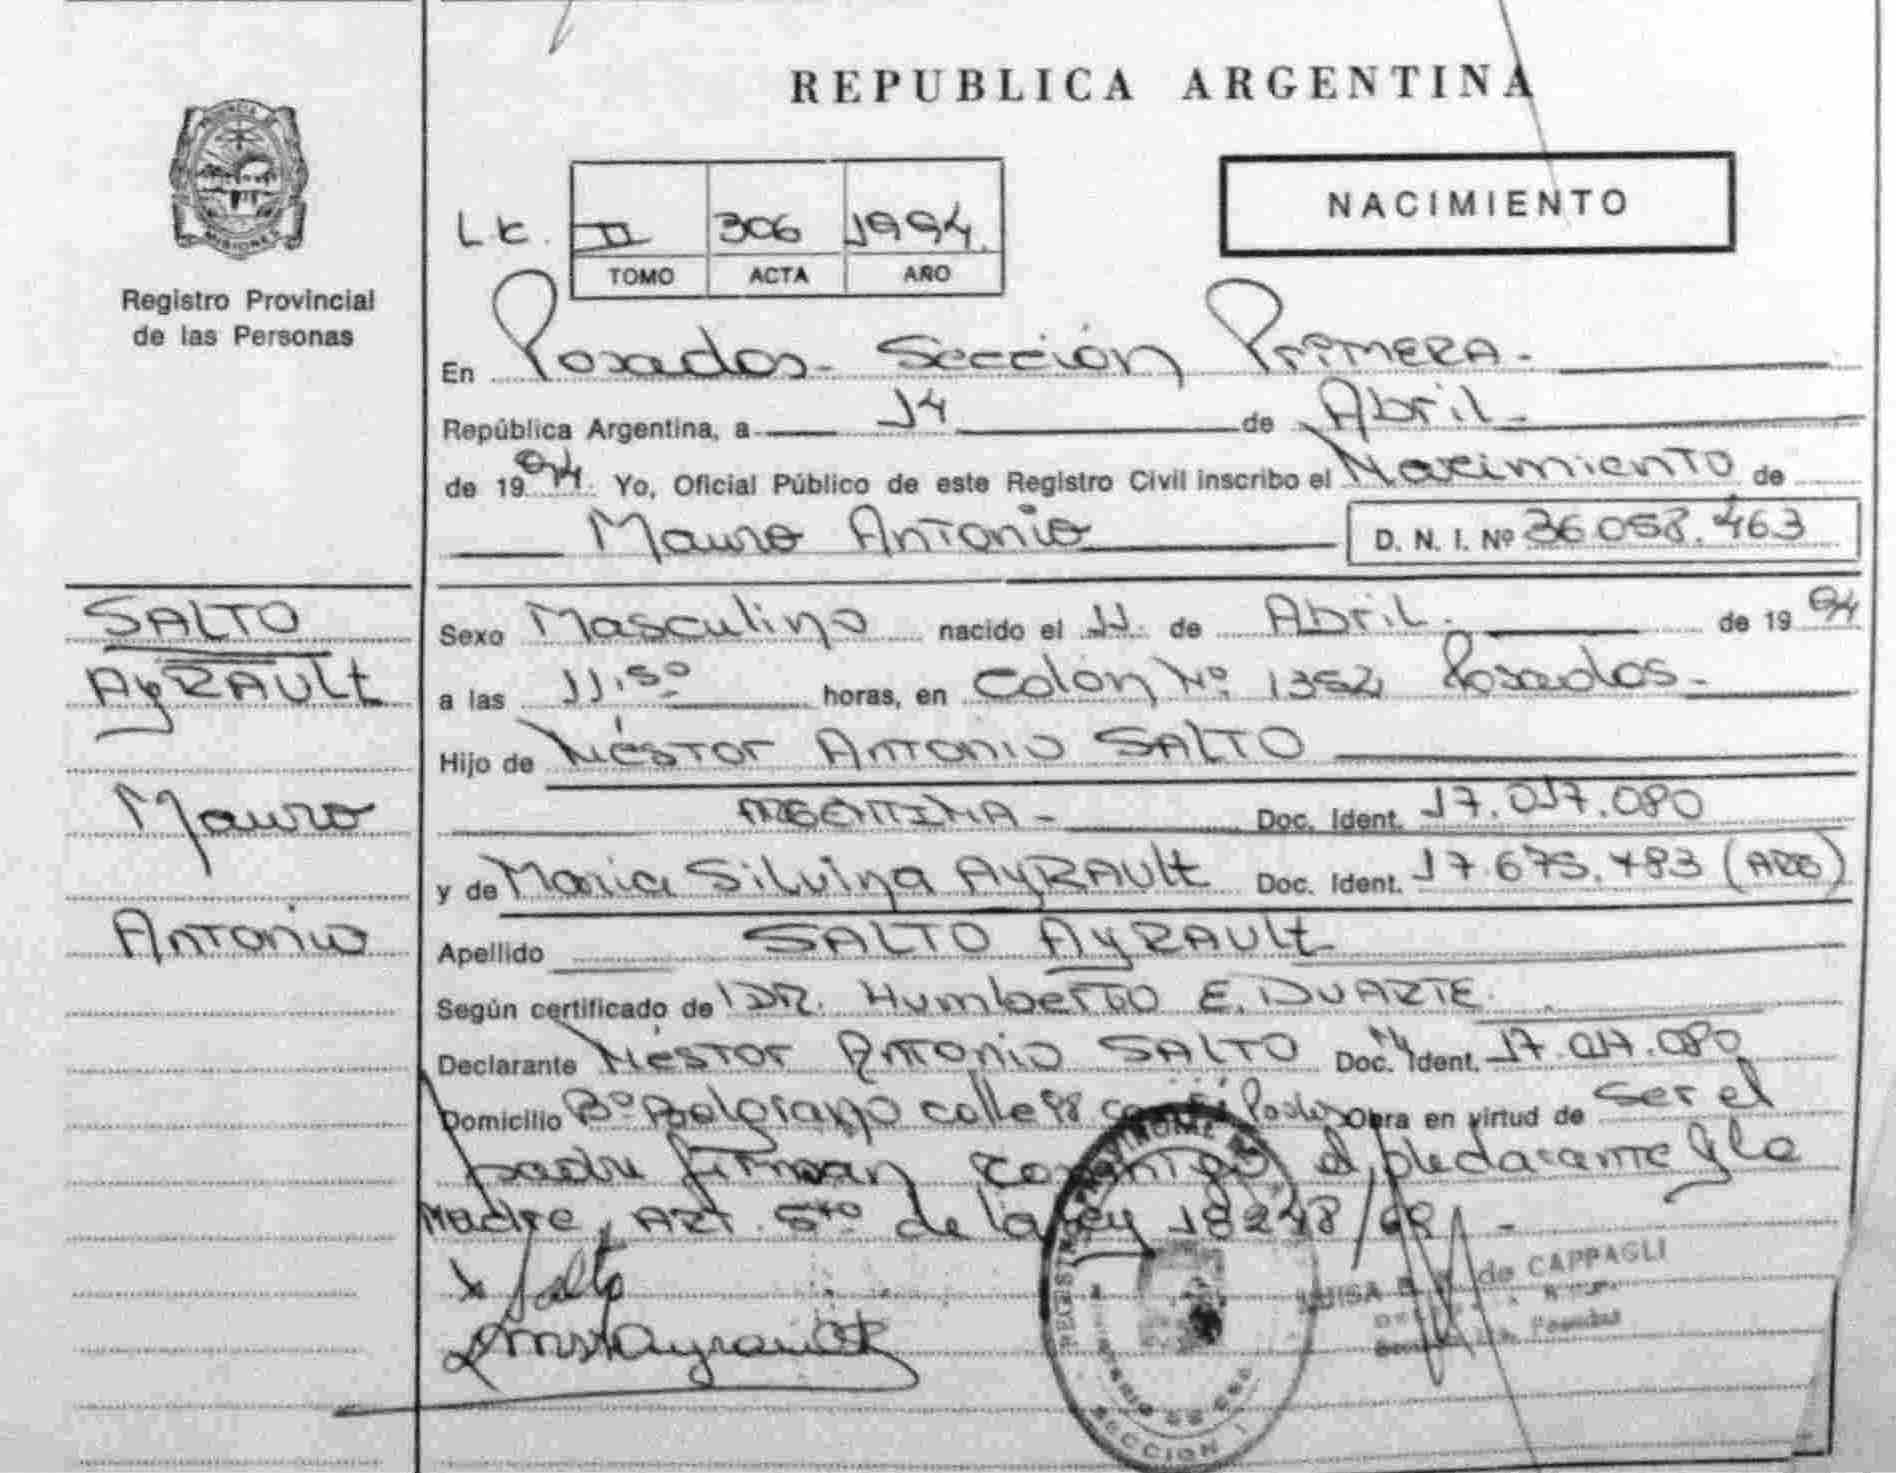 REPUBLICA ARGENTINA
PROVINCIA DE
MISIONES
Registro Provincial
de las Personas
II 306 1994.
TOMO ACTA AÑO
NACIMIENTO
En Posadas - Sección PRIMERA -
República Argentina, a 14 de Abril -
de 1994. Yo, Oficial Público de este Registro Civil inscribo el Nacimiento de
Mauro Antonio D. N. I. Nº 36.058.463
SALTO
AyRAUlt
Mauro
Antonio
Sexo Masculino nacido el 11 de Abril. de 1994
a las 11,50 horas, en Colón Nº 1352 Posadas -
Hijo de Néstor Antonio SALTO
ARGENTINA - Doc. Ident. 17.017.080
y de María Silvina AyRAUlt Doc. Ident. 17.675.483 (ARG)
Apellido SALTO AyRAUlt
Según certificado de DR. Humberto E. DUARTE.
Declarante Néstor Antonio SALTO Doc. Ident. 17.017.080
Domicilio Bº Belgrano calle 98 Obra en virtud de ser el
padre firman conmigo el declarante y la
Madre, ART. 5to de la ley 18248/69 -
x Salto
LUISA de CAPPAGLI
Posadas
SECCION 1